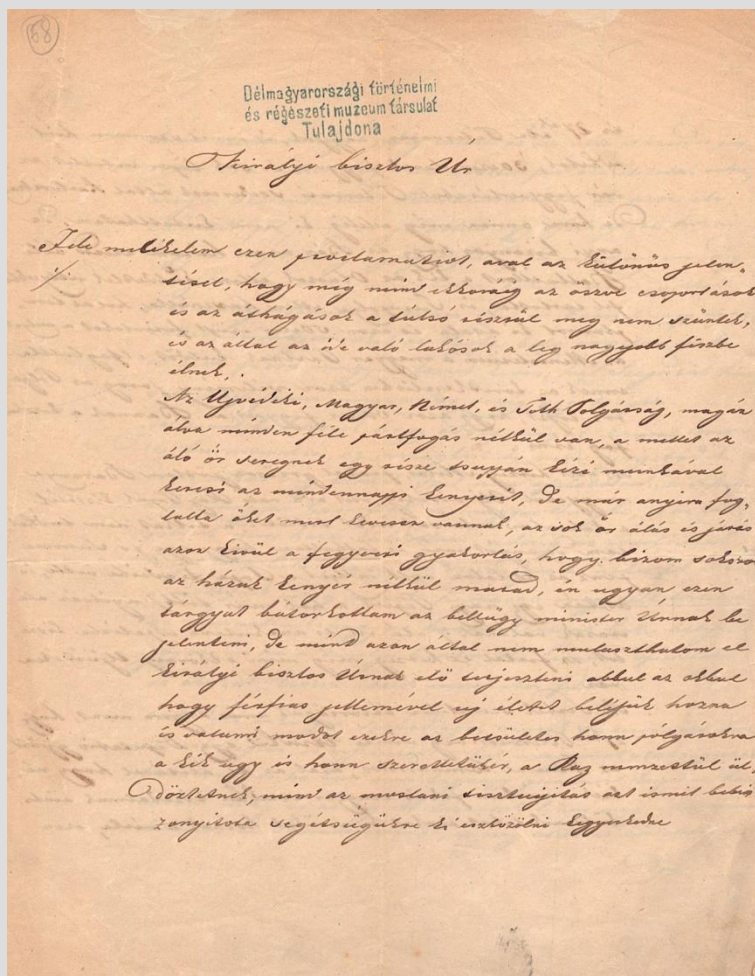 58
Délmagyarországi történelmi
és régészeti muzeum társulat
Tulajdona
Királyi bisztos Úr
Ide mellékelem ezen proclamatiot, aval az különös jelen-
tésel, hogy még mind ekkoráig az öszve csoportások
és az áthágások a túlsó részrül meg nem szüntek,
és az által az ide való lakósok a leg nagyobb
élnek.
Az Ujvidéki, Magyar, Német, és Toth Polgárság, magár
álva minden féle pártfogás nélkül van, a mellet az
áló őr seregnek egy része tsupján kézi munkával
keresi az mindennapi kenyerit, de már anyira fog-
lalta őket mert kevesen vannak, az sok őr álás és járás
azon kivül a fegyveri gyakorlás, hogy bizom sokszor
az házuk kenyér nélkül marad, én ugyan ezen
tárgyat bátorkottam az bellügy minister Úrnak be
jelenteni, de mind azon által nem mulaszthatom el
királyi bisztos Úrnak elő terjeszteni abbul az okbul
hogy férfias jellemével uj életet beléjük hozna
és valami modot ezekre az becsületes honn polgárokra
a kik ugy is honn szeretetükér, a Raz nemzettül ül,
döztetnek, mind az mostani tisztujitás azt ismét bebi
zonyitota segítségükre ki eszközölni kegyeskedne